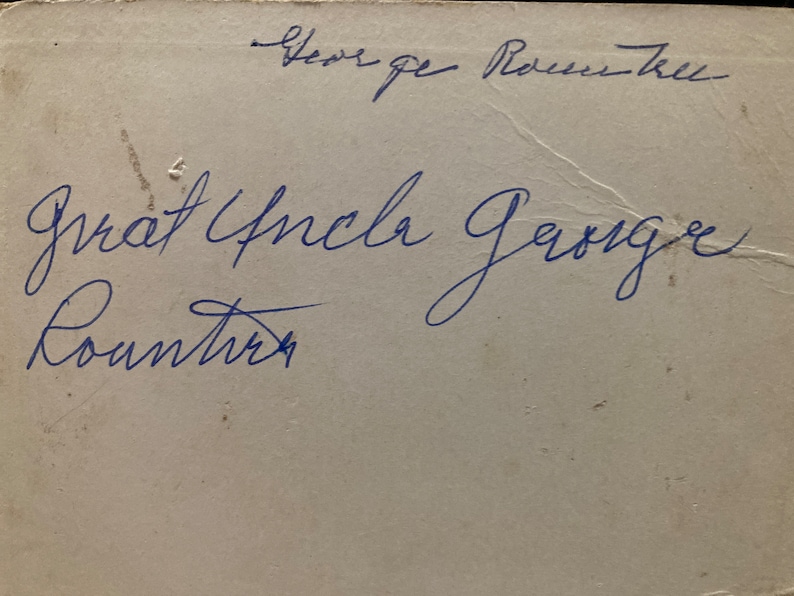 George Rountree
Great Uncle George
Rountree